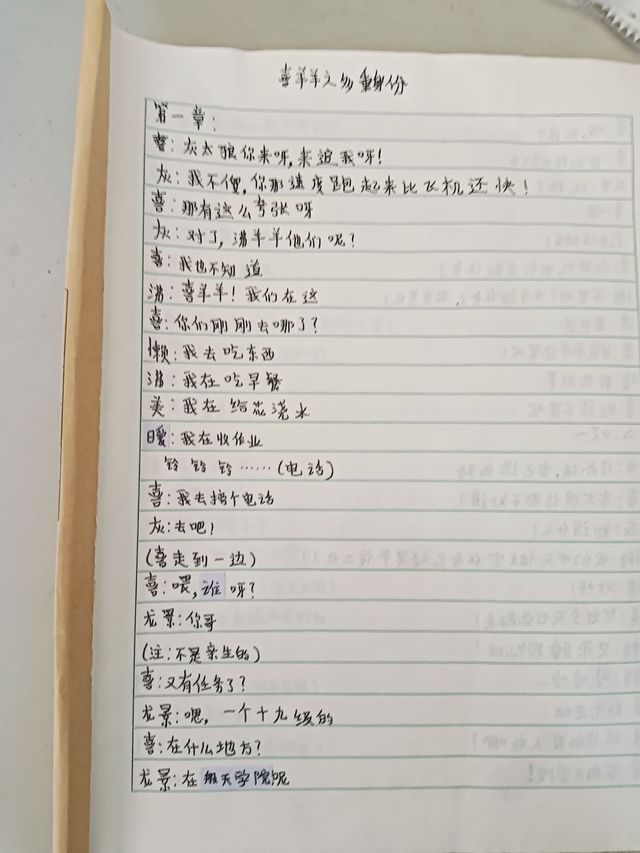 喜羊羊之多重身份
第一章:
喜:灰太狼你来呀,来追我呀!
灰:我不傻,你那速度跑起来比飞机还快!
喜:那有这么夸张呀
灰:对了,沸羊羊他们呢?
喜:我也不知道
沸:喜羊羊!我们在这
喜:你们刚刚去哪了?
懒:我去吃东西
沸:我在吃早餐
美:我在给花浇水
暖:我在收作业
铃铃铃……(电话)
喜:我去接个电话
灰:去吧!
(喜走到一边)
喜:喂,谁呀?
龙景:你哥
(注:不是亲生的)
喜:又有任务了?
龙景:嗯,一个十九级的
喜:在什么地方?
龙景:在天学院呢